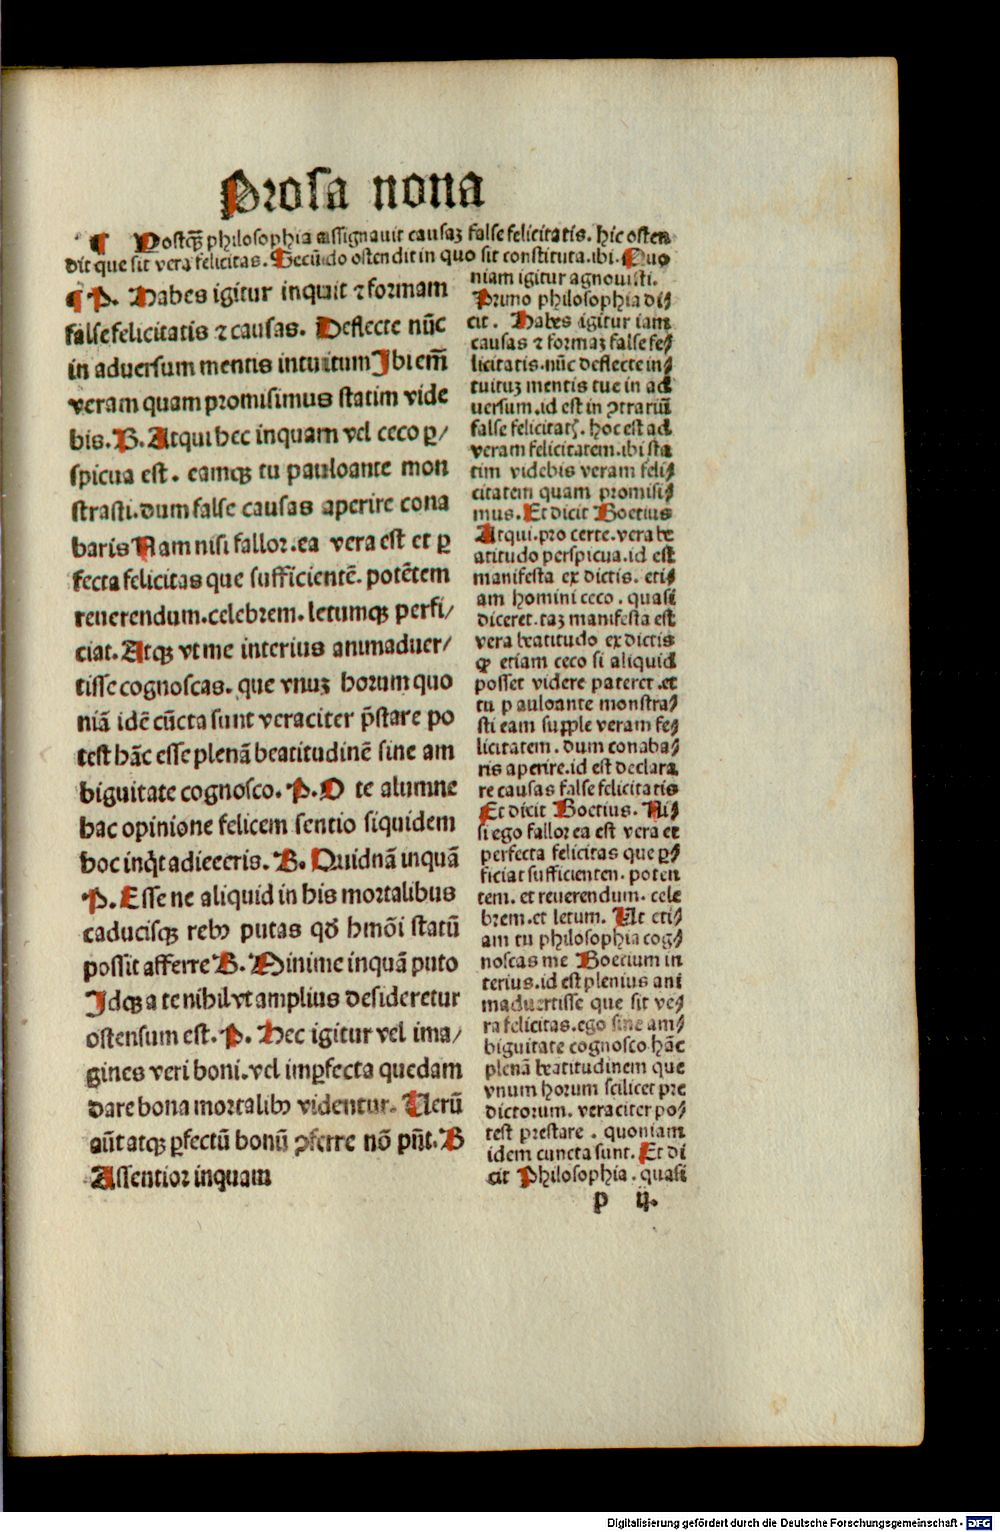 Prosa nona
¶ Postqȝ philosophia assignauit causaȝ false felicitatis. hic osten
dit que sit vera felicitas. Secūdo ostendit in quo sit constituta. ibi. Quo
¶ P. Habes igitur inquit ⁊ formam
false felicitatis ⁊ causas. Deflecte nūc
in aduersum mentis intuitum Ibi em̄
veram quam promisimus statim vide
bis. B. Atqui hec inquam vel ceco ꝑ/
spicua est. eamqȝ tu pauloante mon
strasti. dum false causas aperire cona
baris Nam nisi fallor. ea vera est et ꝑ
fecta felicitas que sufficientē. potētem
reuerendum. celebrem. letumqȝ perfi/
ciat. Atqȝ vt me interius animaduer/
tisse cognoscas. que vnuȝ horum quo
niā idē cūcta sunt veraciter p̄stare po
test hāc esse plenā beatitudinē sine am
biguitate cognosco. P. O te alumne
hac opinione felicem sentio siquidem
hoc inq̇t adieceris. B. Quidnā inquā
P. Esse ne aliquid in his mortalibus
caducisqȝ rebꝰ putas qđ hmōi statū
possit afferre B. Minime inquā puto
Idqȝ a te nihil vt amplius desideretur
ostensum est. P. Hec igitur vel ima/
gines veri boni. vel imꝑfecta quedam
dare bona mortalibꝰ videntur. Uerū
aūt atqȝ ꝑfectū bonū ꝯferre nō pn̄t. B
Assentior inquam
niam igitur agnouisti.
Primo philosophia di/
cit. Habes igitur iam
causas ⁊ formaȝ false fe/
licitatis. nūc deflecte in/
tuituȝ mentis tue in ad
uersum. id est in ꝯtrariū
false felicitatꝭ. hoc est ad
veram felicitatem. ibi sta
tim videbis veram feli/
citatem quam promisi/
mus. Et dicit Boetius
Atqui. pro certe. vera be
atitudo perspicua. id est
manifesta ex dictis. eti/
am homini ceco. quasi
diceret. taȝ manifesta est
vera beatitudo ex dictis
ꝙ etiam ceco si aliquid
posset videre pateret. et
tu p auloante monstra/
sti eam supple veram fe/
licitatem. dum conaba/
ris aperire. id est declara
re causas false felicitatis
Et dicit Boetius. Ni/
si ego fallor ea est vera et
perfecta felicitas que ꝑ/
ficiat sufficientem. poten
tem. et reuerendum. cele
brem. et letum. Ut eti/
am tu philosophia cog/
noscas me Boetium in
terius. id est plenius ani
maduertisse que sit ve/
ra felicitas. ego sine am/
biguitate cognosco hāc
plenā beatitudinem que
vnum horum scilicet pre
dictorum. veraciter po/
test prestare. quoniam
idem cuncta sunt. Et di
cit Philosophia. quasi
p ij.
Digitalisierung gefördert durch die Deutsche Forschungsgemeinschaft - DFG